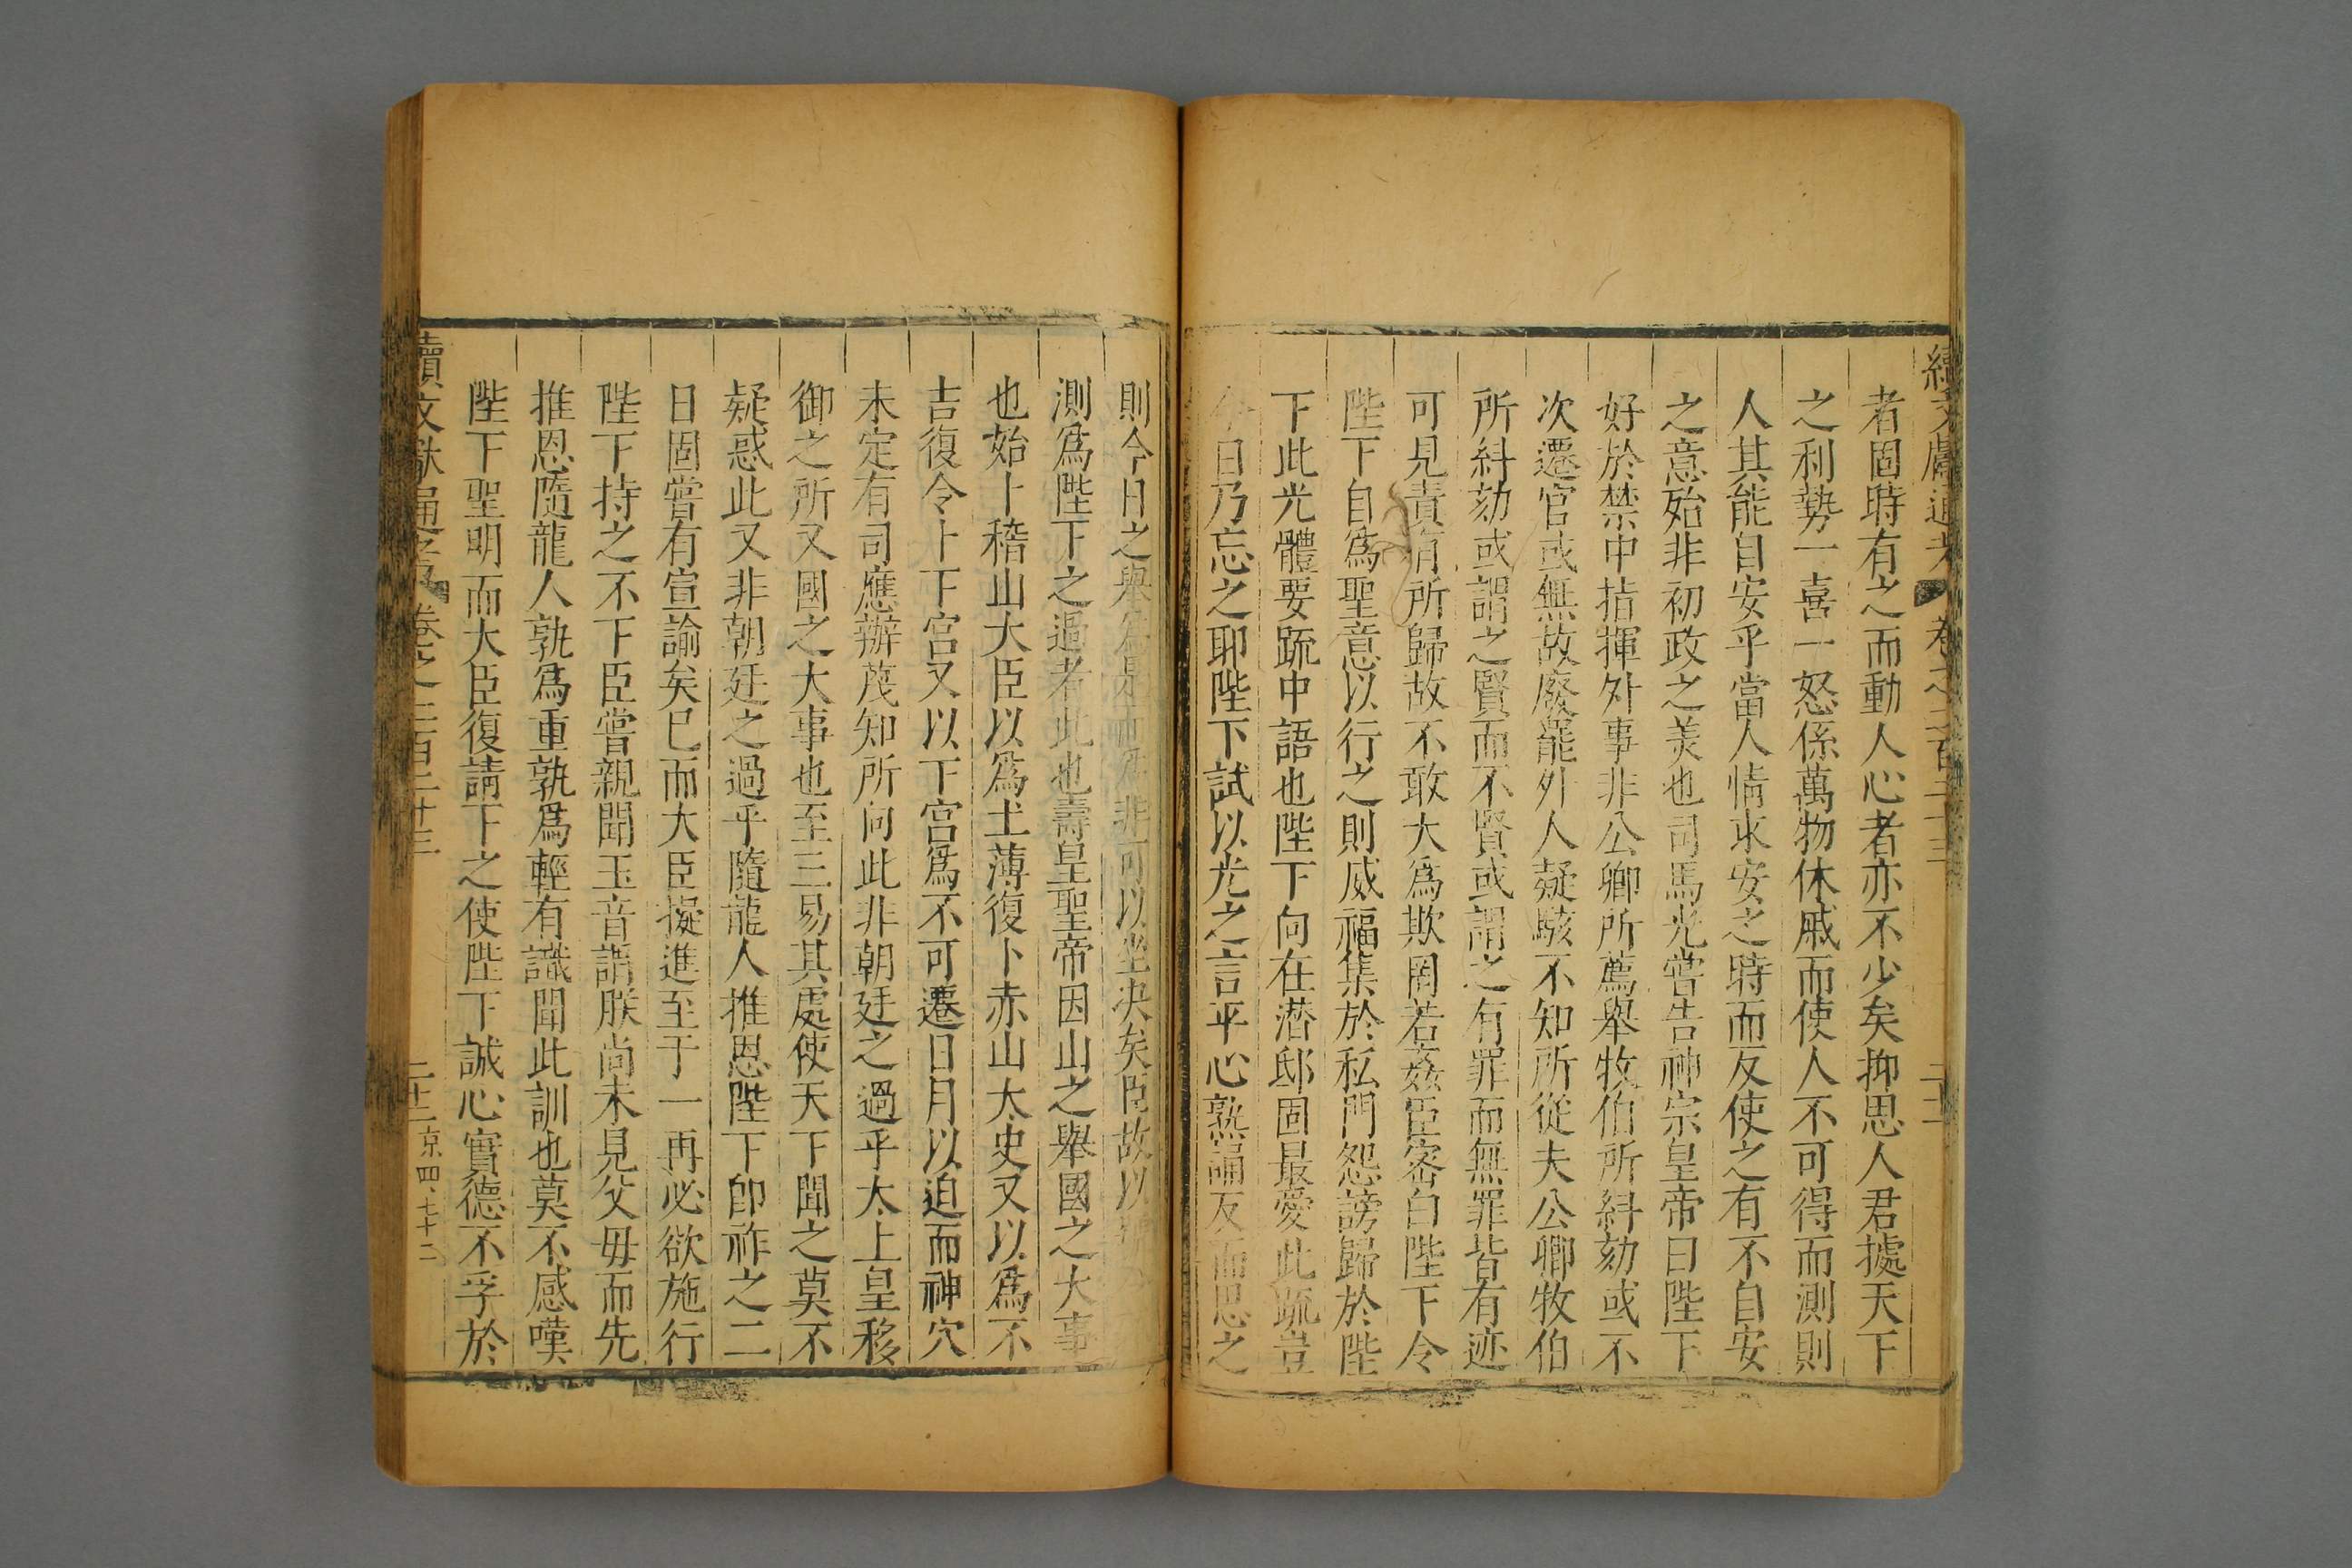 續文獻通考 卷之二百二十三 二十二
者固時有之而動人心者亦不少矣抑思人君據天下
之利勢一喜一怒係萬物休戚而使人不可得而測則
人其能自安乎當人情求安之時而反使之有不自安
之意殆非初政之美也司馬光嘗告神宗皇帝曰陛下
好於禁中指揮外事非公卿所薦舉牧伯所糾劾或不
次遷官或無故廢罷外人疑駭不知所從夫公卿牧伯
所糾劾或謂之賢而不賢或謂之有罪而無罪皆有迹
可見責有所歸故不敢大為欺罔若姦臣密白陛下令
陛下自為聖意以行之則威福集於私門怨謗歸於陛
下此光體要疏中語也陛下向在潛邸固最愛此疏豈
今日乃忘之耶陛下試以光之言平心熟誦反而思之
則今日之舉為是而為非可以坐決矣臣故以
測爲陛下之過者此也壽皇聖帝因山之舉國之大事
也始卜稽山大臣以爲土薄復卜赤山太史又以爲不
吉復令卜下宮又以下宮爲不可遷日月以迫而神穴
未定有司應辦茂知所向此非朝廷之過乎太上皇移
御之所又國之大事也至三易其處使天下聞之莫不
疑惑此又非朝廷之過乎隨龍人推恩陛下卽祚之二
日固嘗有宣諭矣已而大臣擬進至于一再必欲施行
陛下持之不下臣嘗親聞玉音謂朕尚未見父母而先
推恩隨龍人孰爲重孰爲輕有識聞此訓也莫不感嘆
陛下聖明而大臣復請下之使陛下誠心實德不孚於
續文獻通考 卷之二百二十三 二十二 京四、七十二